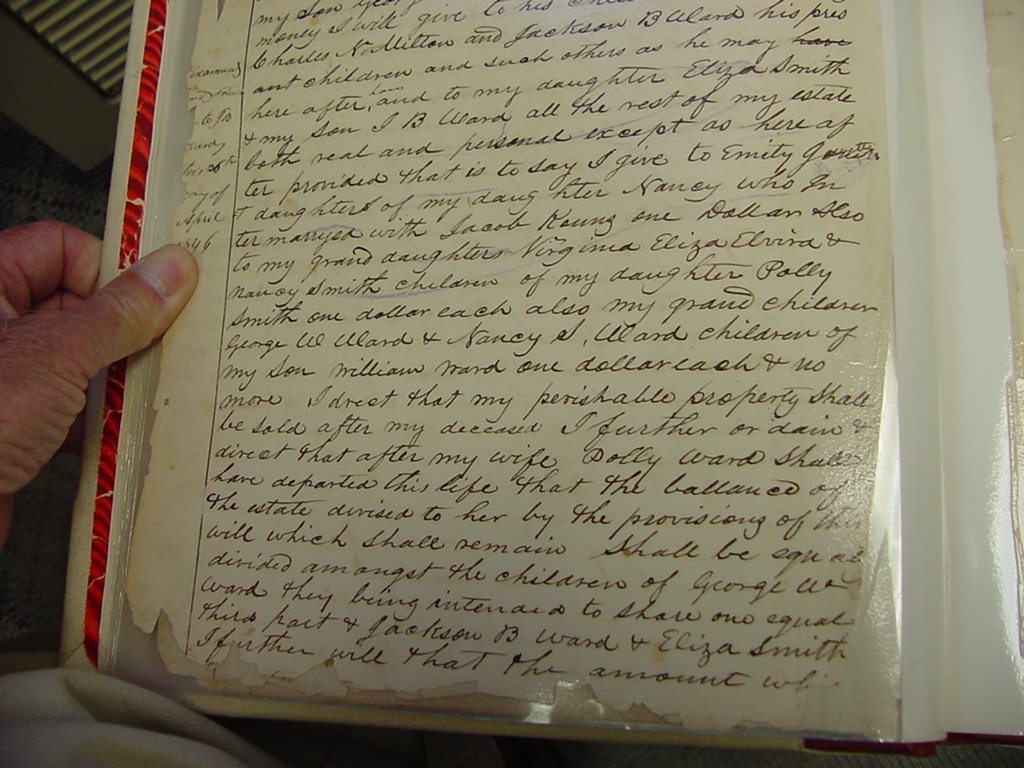 my son Georg
money I will give to his chil
Charles N. Milton and Jackson B Ward his pres
ant children and such others as he may have
here after have and to my daughter Eliza Smith
& my Son J B Ward all the rest of my estate
both real and personal except as here af
ter provided that is to say I give to Emily
daughters of my daughter Nancy who In
ter marryed with Jacob Koung one Dollar Also
to my grand daughters Virginia Eliza Elvira &
Nancy Smith children of my daughter Polly
Smith one dollar each also my grand children
George W Ward & Nancy S. Ward children of
my Son William Ward one dollar each & no
more I drect that my perishable property Shall
be sold after my deceased I further or dain &
direct that after my wife Polly Ward Shall
have departed this life that the ballance of
the estate divised to her by the provisions of this
will which shall remain Shall be equal
divided amongst the children of George W
Ward they being intended to share one equal
third part & Jackson B Ward & Eliza Smith
I further will that the amount whi
Examined
to JB
Ward
this 28th
day of
April
1846